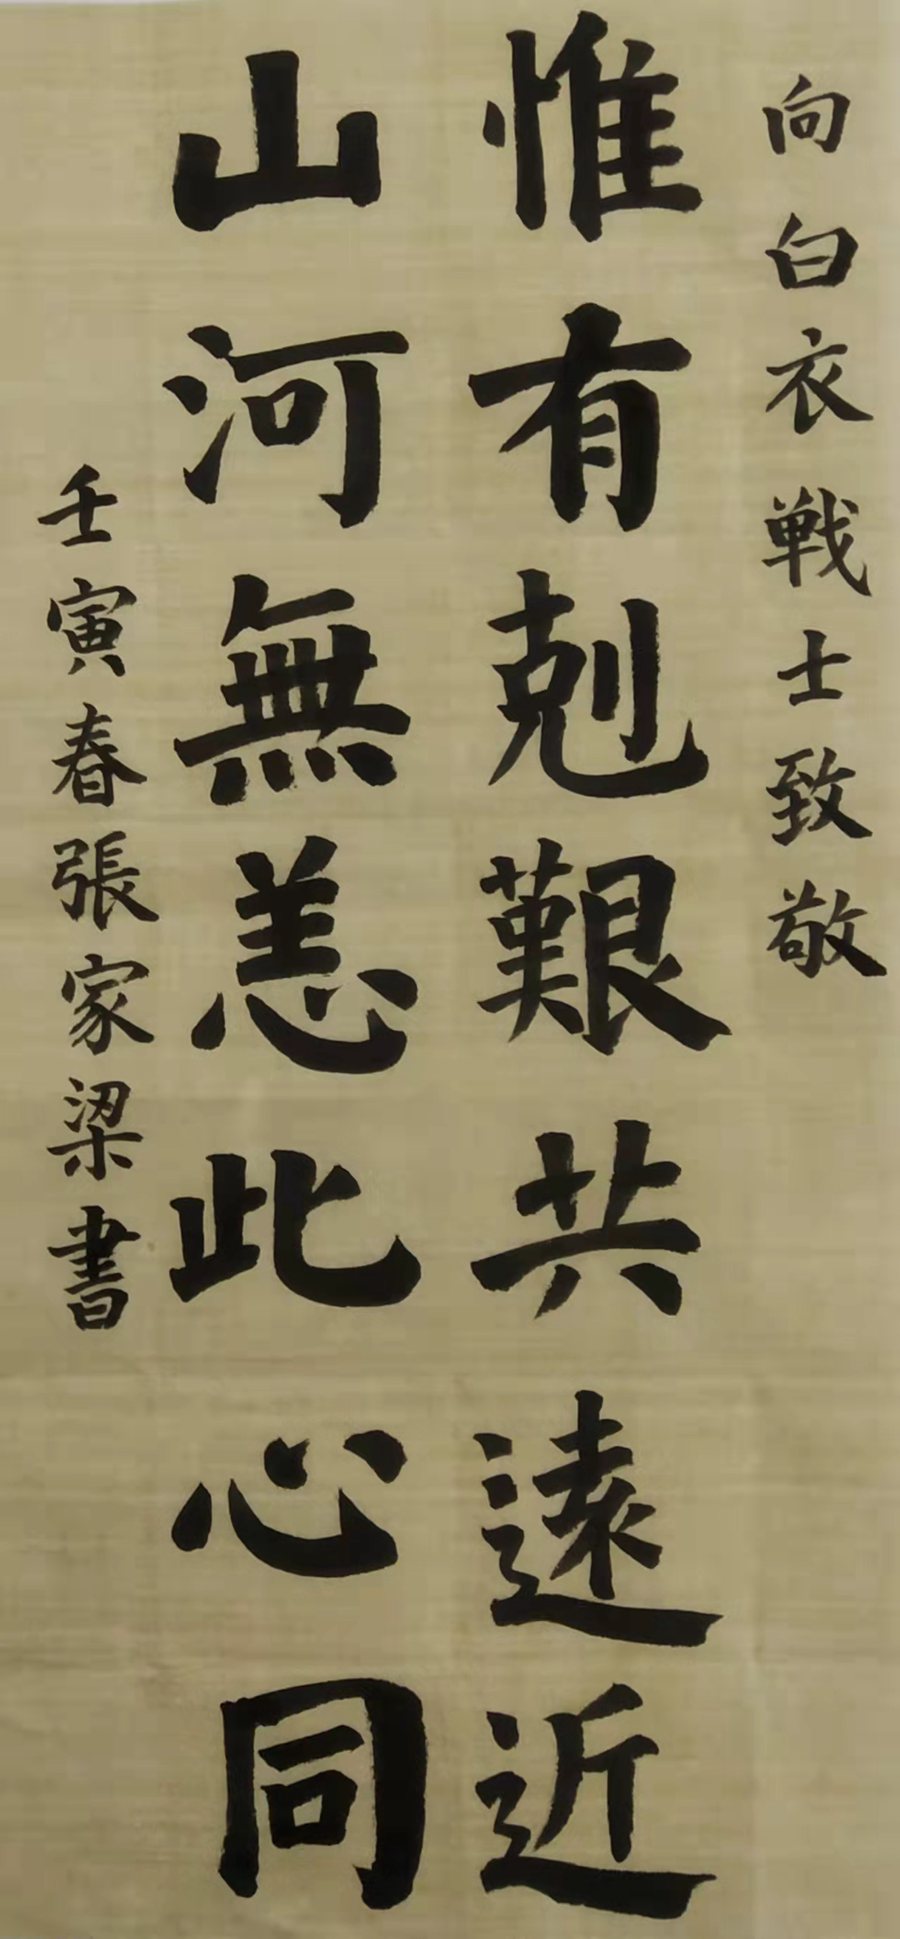 向白衣戦士致敬
惟有剋艱共遠近
山河無恙此心同
壬寅春張家梁書